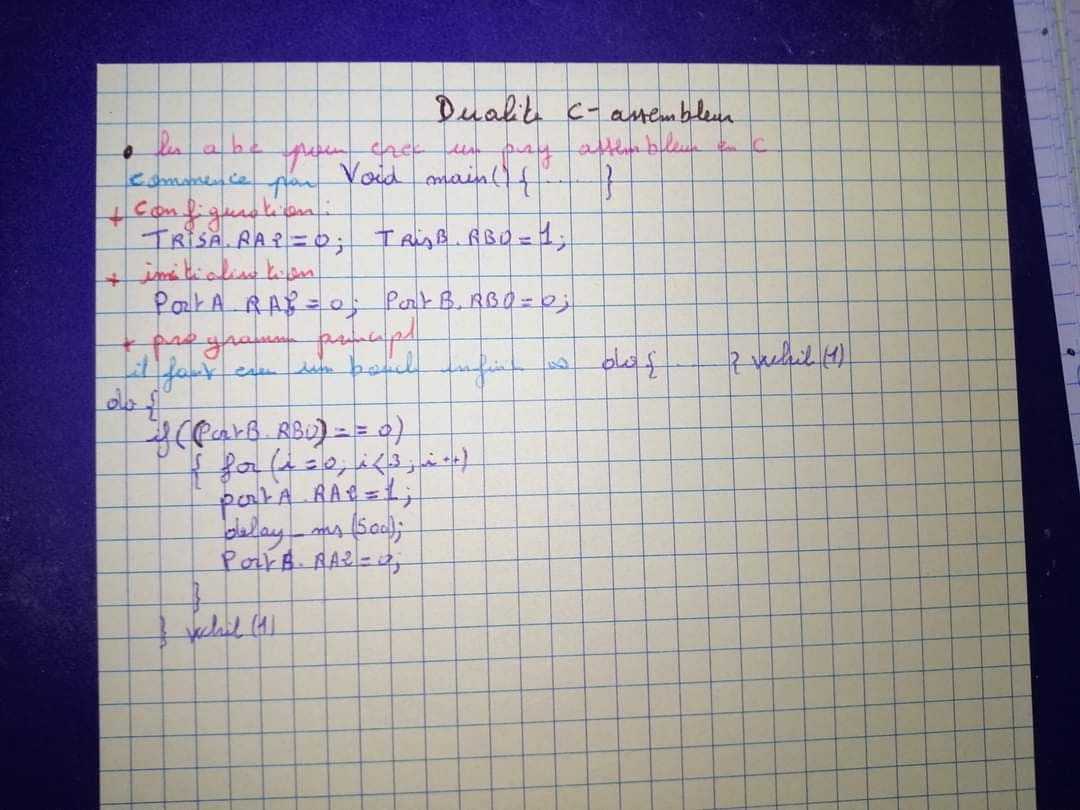 Dualite c-assembleur
• les abc pour creć un prg assembleur en C
commence par Void main() { .... }
+ Configuration:
TRISA.RA2=0; TRisB.RB0=1;
+ initialisation
PortA.RA2=0; PortB.RB0=0;
+ programm principl
il faut creć un boucl infini ∞ do { ..... } whil(1)
do {
if((PortB.RB0)==0)
{ for(i=0; i<3; i++)
portA.RA2=1;
delay_ms(500);
PortA.RA2=0;
}
} whil(1)